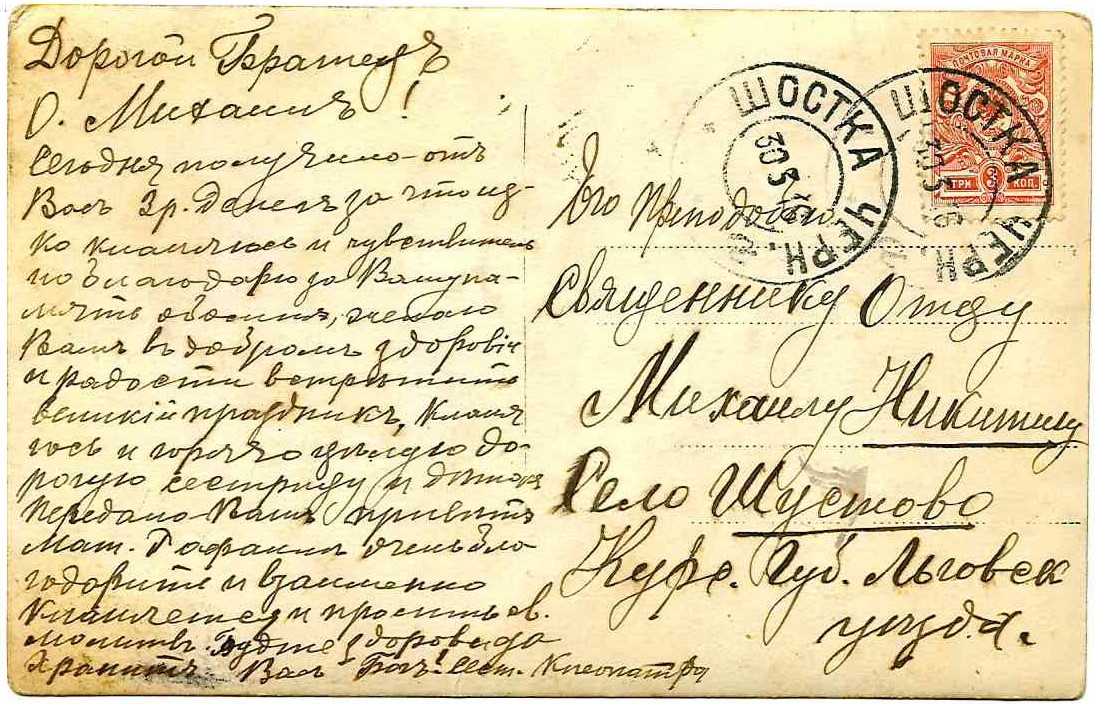 Дорогой Братецъ
О. Михаилъ!
Сегодня получила отъ
Васъ 3 р. денегъ за что
ко кланяюсь и чувствитель
но благодарю за Вашу па-
мять обо мнѣ, желаю
Вамъ въ добромъ здоровіи
и радости встрѣтить
великій праздникъ, Кланя
юсь и горячо цѣлую до-
рогую сестрицу и дѣтокъ
передала Вашъ привѣтъ
Мат. очень бла
годаритъ и взаимно
кланяется и проситъ св.
молитвъ. Будте здоровы да
хранитъ Васъ Богъ! Сест. Клеопатра
ПОЧТОВАЯ МАРКА
ТРИ 3 КОП.
ШОСТКА ЧЕРН.
30 3 16
ШОСТКА ЧЕРН.
30 3 16
Его Преподобію
Священнику Отцу
Михаилу Никитину
Село Шустово
Курс. Губ. Льговск
уѣзда.